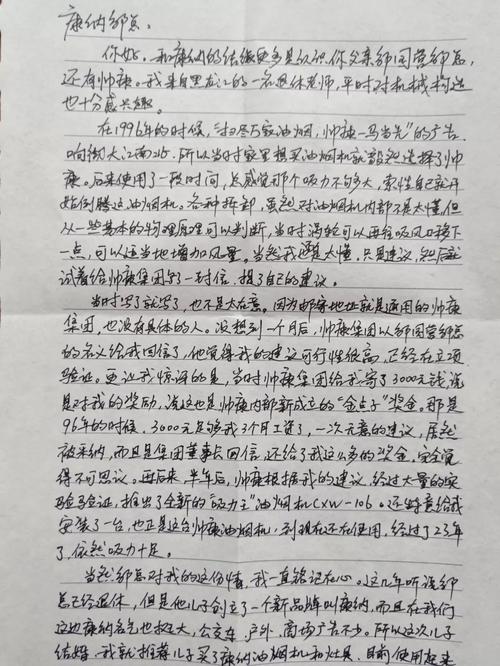 康纳邹总:
你好。和康纳的结缘更多是认识你父亲邹国营邹总,
还有帅康。我来自黑龙江的一名退休老师,平时对机械构造
也十分感兴趣。
在1996年的时候,“扫尽万家油烟,帅康一马当先”的广告
响彻大江南北。所以当时家里想买油烟机就毅然选择了帅
康。后来使用了一段时间,总感觉那个吸力不够大,索性自己就开
始倒腾这油烟机。各种拆卸,虽然对油烟机内部不是太懂但
从一些基本的物理原理可以判断,当时涡轮可以再往吸风口移下
一点,可以适当地增加风量。当然我也是不太懂,只是建议,然后就
试着给帅康集团写了一封信,提了自己的建议。
当时写了就写了,也不是太在意。因为邮寄地址就是通用的帅康
集团,也没有具体的人。没想到一个月后,帅康集团以邹国营邹总
的名义给我回信了,他觉得我的建议可行性很高,已经在立项
验证。更让我惊讶的是,当时帅康集团给我寄了3000元钱,说
是对我的奖励,说这也是帅康内部新成立的“金点子”奖金。那是
96年的时候,3000元足够我3个月工资了,一次无意的建议,居然
被采纳,而且是集团董事长回信,还给了我这么多的奖金,完全觉
得不可思议。再后来,半年后,帅康根据我的建议,经过大量的实
验与验证,推出了全新的“吸力王”油烟机CXW-106。还特意给我
安装了一台,也正是这台帅康油烟机,到现在还在使用,经过了23年
了,依然吸力十足。
当然邹总对我的这份情,我一直铭记在心。这几年听说邹
总已经退休,但是他儿子创立了一个新品牌叫康纳,而且在我们
这边康纳名气也挺大,公交车、户外、商场广告不少。所以这次儿子
结婚,我就推荐儿子买了康纳油烟机和灶具,目前使用起来